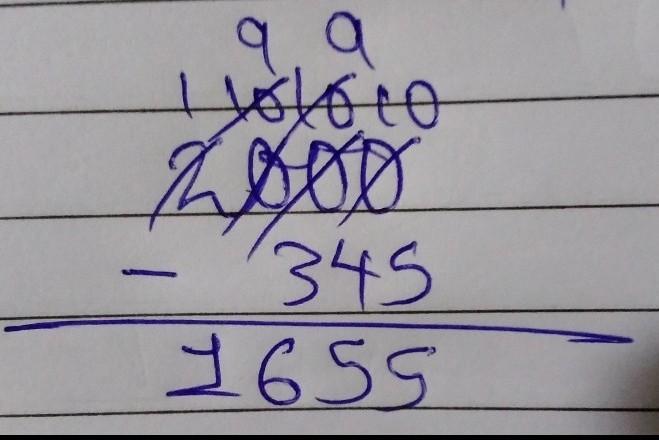 9 9
1 10 10 10
2000
- 345
1655